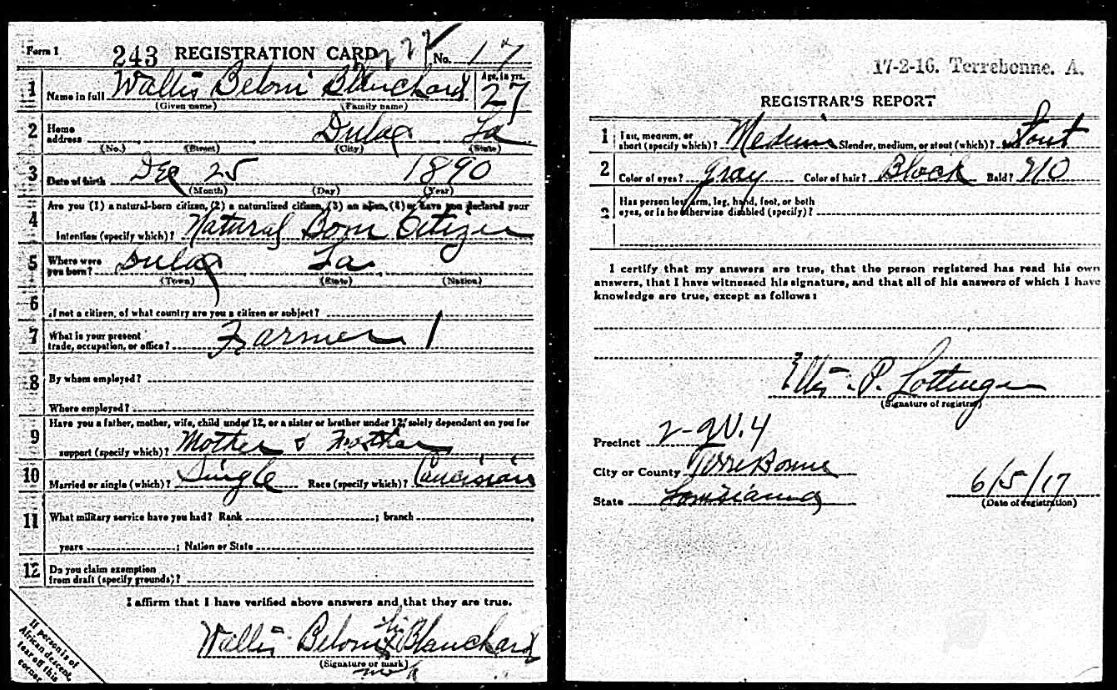 Form 1
243 REGISTRATION CARD No. 17
1 Name in full Wallis Beloni Blanchard Age, in yrs. 27
(Given name) (Family name)
2 Home address Dulac La
(No.) (Street) (City) (State)
3 Date of birth Dec 25 1890
(Month) (Day) (Year)
4 Are you (1) a natural-born citizen, (2) a naturalized citizen, (3) an alien, (4) or have you declared your
intention (specify which)? Natural Born Citizen
5 Where were you born? Dulac La
(Town) (State) (Nation)
6 If not a citizen, of what country are you a citizen or subject?
7 What is your present trade, occupation, or office? Farmer 1
8 By whom employed?
Where employed?
9 Have you a father, mother, wife, child under 12, or a sister or brother under 12, solely dependent on you for
support (specify which)? Mother &
10 Married or single (which)? Single Race (specify which)? Caucisian
11 What military service have you had? Rank ; branch ,
years ; Nation or State
12 Do you claim exemption
from draft (specify grounds)?
I affirm that I have verified above answers and that they are true.
his
Wallis Beloni X Blanchard
(Signature or mark)
mark
If person is of
African descent,
tear off this
corner
17-2-16. Terrebonne. A.
REGISTRAR'S REPORT
1 Tall, medium, or
short (specify which)? Medium Slender, medium, or stout (which)? Stout
2 Color of eyes? Gray Color of hair? Black Bald? No
3 Has person lost arm, leg, hand, foot, or both
eyes, or is he otherwise disabled (specify)?
I certify that my answers are true, that the person registered has read his own
answers, that I have witnessed his signature, and that all of his answers of which I have
knowledge are true, except as follows:
P. Lottinger
(Signature of registrar)
Precinct 2- W. 4
City or County Terrebonne
State Louisianna
6/5/17
(Date of registration)